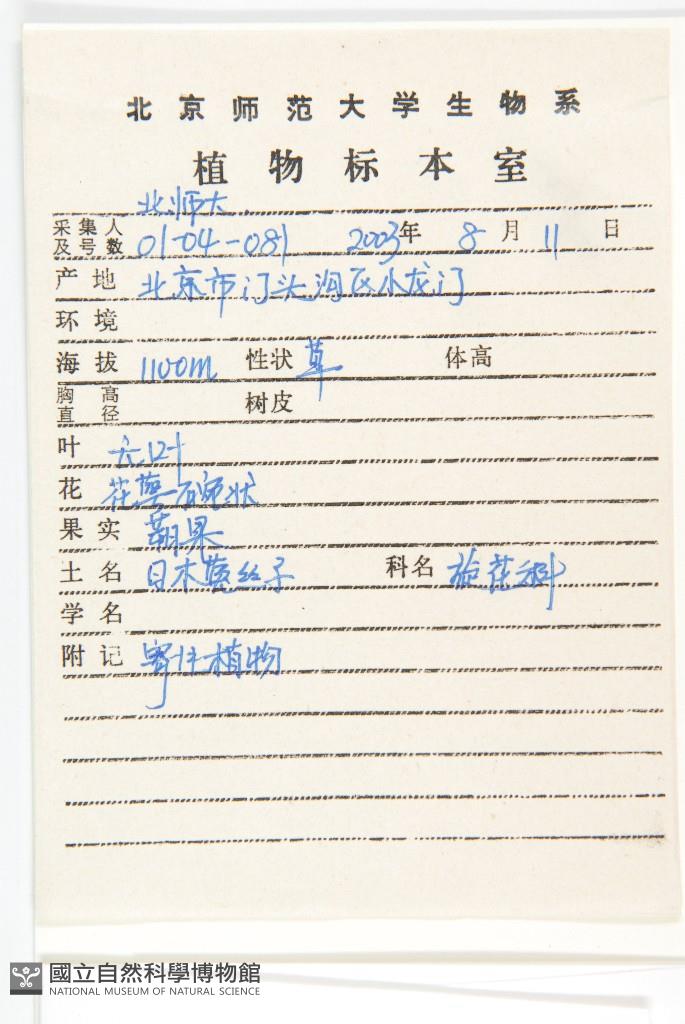 北京师范大学生物系
植物标本室
北师大
采集人及号数 01-04-081 2003年 8月 11日
产地 北京市门头沟区小龙门
环境
海拔 1100m 性状 草 体高
胸高直径 树皮
叶 无叶
花 花萼碗状
果实 蒴果
土名 日本菟丝子 科名 旋花科
学名
附记 寄生植物
國立自然科學博物館
NATIONAL MUSEUM OF NATURAL SCIENCE